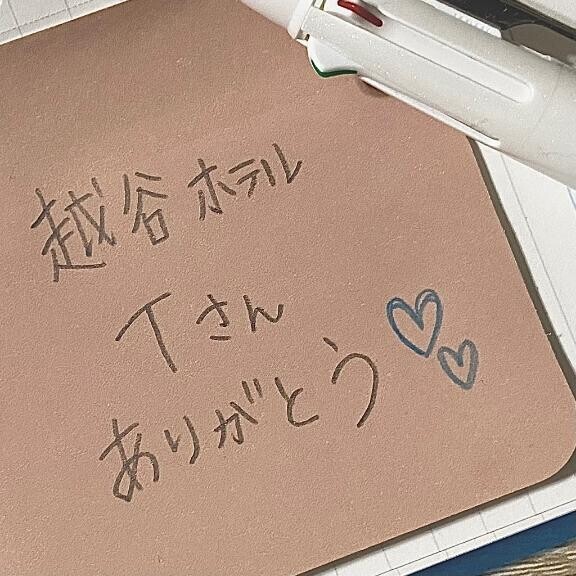 越谷 ホテル
Tさん
ありがとう♡♡